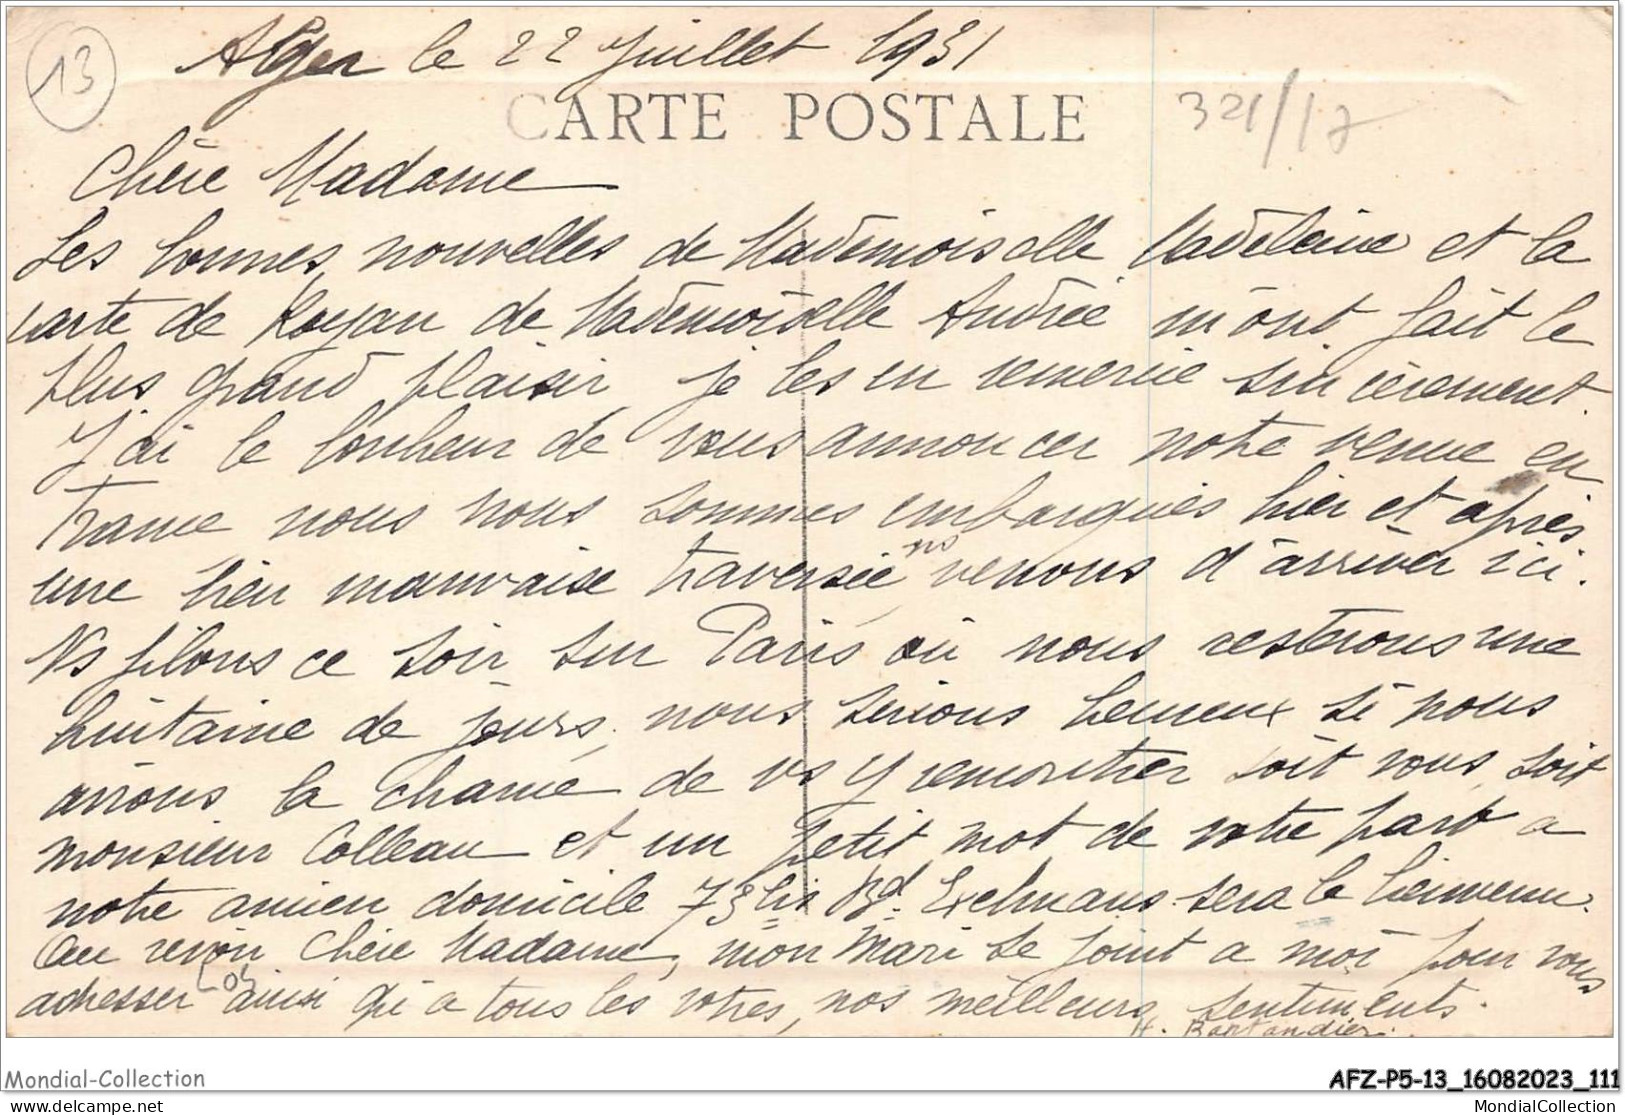 13
Alger le 22 Juillet 1931
CARTE POSTALE
321/17
Chère Madame
Les bonnes nouvelles de Mademoiselle Madeleine et la
carte de Royan de Mademoiselle Andrée m'ont fait le
plus grand plaisir je les en remercie sincèrement.
J'ai le bonheur de vous annoncer notre venue en
France nous nous sommes embarqués hier et après
une bien mauvaise traversée ns venons d'arriver ici.
Ns filons ce soir sur Paris où nous resterons une
huitaine de jours, nous serions heureux si nous
avions la chance de vs y rencontrer soit vous, soit
monsieur Colleau et un petit mot de votre part a
notre ancien domicile 73 bis Bd. Exelmans sera le bienvenu.
Au revoir Chère Madame, mon Mari se joint a moi pour vous
adresser ainsi qu'a tous les votres, nos meilleurs sentiments.
H. Bartandier.
Mondial-Collection
AFZ-P5-13_16082023_111
delcampe.net
MondialCollection